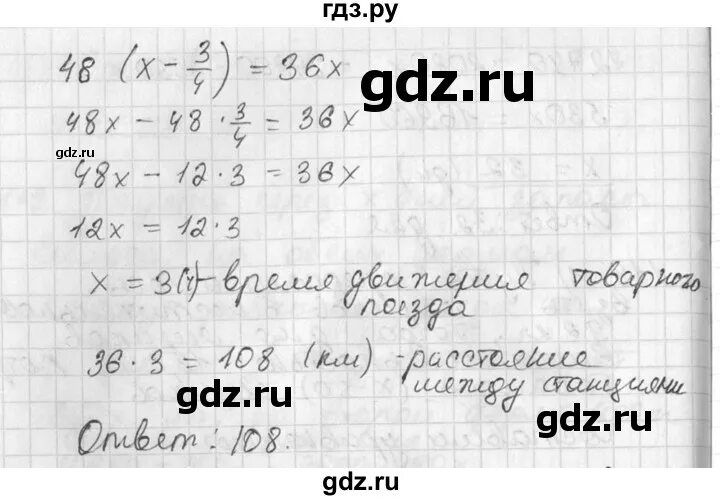 гдз.ру
48 (x - 3/4) = 36x
gdz.ru
48x - 48 · 3/4 = 36x
gdz.ru
48x - 12 · 3 = 36x
12x = 12 · 3
x = 3(ч) - время движения товарного
поезда
gdz.ru
36 · 3 = 108 (км) - расстояние
между станциями
gdz.ru
gdz.ru
Ответ: 108.
gdz.ru